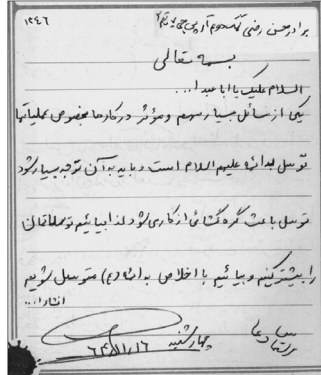 برادر محسن رضی تک دوم آر پی جی ۷ تیم ۱
۱۲۴۶
بسمه تعالی
السلام علیک یا ابا عبدا...
یکی از مسائل بسیار مهم و مؤثر در کارها مخصوص عملیاتها
توسل به ائمه علیهم السلام است و باید به آن توجه بسیار شود
توسل باعث گره گشائی از کار می شود لذا بیائیم توسلاتمان
را بیشتر کنیم و بیائیم با اخلاص به ائمه (ع) متوسل شویم
انشاءا...
التماس دعا
چهارشنبه
۶۴/۱/۱۶